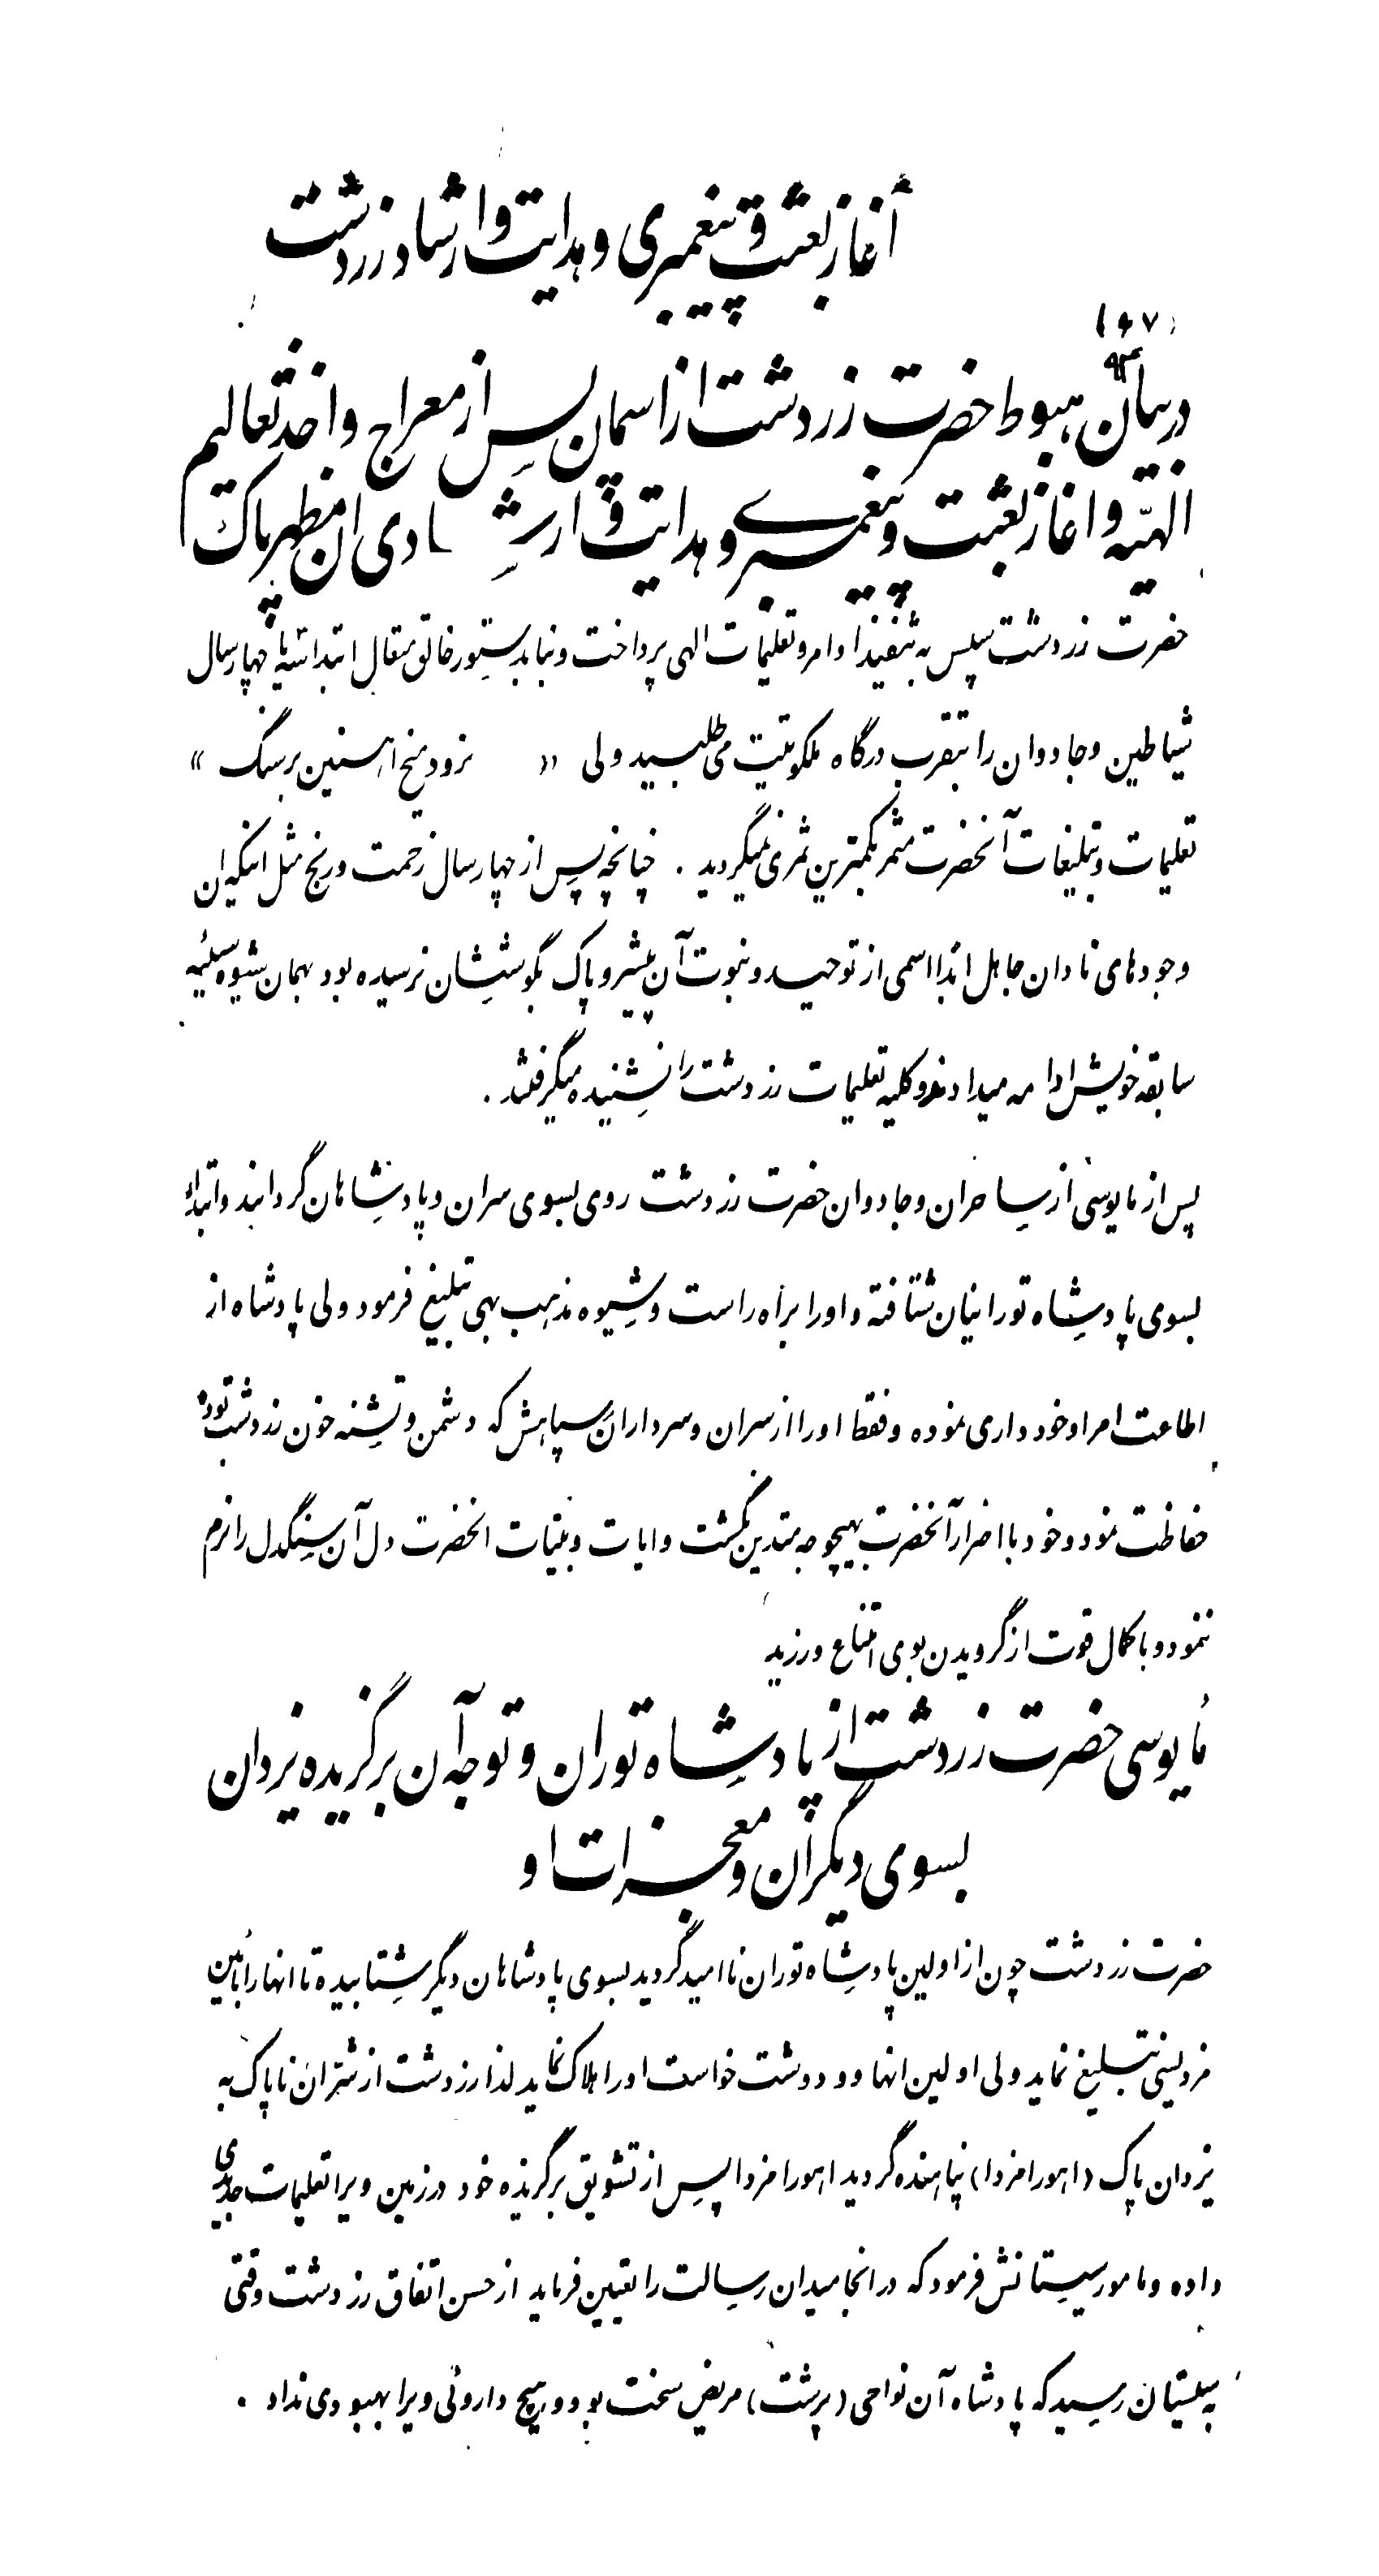 آغاز بعثت و پیغمبری و هدایت و ارشاد زردشت
(۶۷)
در بیان هبوط حضرت زردشت از اسمان پس از معراج و اخذ تعالیم
الهیّه و اغاز بعثت و پیغمبری و هدایت و ارشادی ان مظهر پاک
حضرت زردشت سپس به تنفیذ اوامر و تعلیمات الهی پرداخت و بنا بدستور خالق متعال ابتدا تا چهار سال
شیاطین و جادوان را بتقرب درگاه ملکوتیت می طلبید ولی « نرود میخ اهنین بر سنگ »
تعلیمات و تبلیغات آنحضرت مثمر بکمترین ثمری نمیگردید . چنانچه پس از چهار سال زحمت و رنج مثل اینکه ان
وجودهای نادان جاهل ابدا اسمی از توحید و نبوت آن پیشرو پاک بگوششان نرسیده بود بهمان شیوه سیئه
سابقه خویش ادامه میدادند و کلیه تعلیمات زردشت را نشنیده میگرفتند .
پس از مایوسی از ساحران و جادوان حضرت زردشت روی بسوی سران و پادشاهان گردانید و ابتداء
بسوی پادشاه تورانیان شتافته و او را براه راست و شیوه مذهب بهی تبلیغ فرمود ولی پادشاه از
اطاعت امر او خودداری نموده و فقط او را از سران و سرداران سپاهش که دشمن و تشنه خون زردشت بودند
حفاظت نمود و خود با اصرار آنحضرت بهیچوجه متدین نگشت و ایات و بینات انحضرت دل آن سنگدل را نرم
ننمود و با کمال قوت از گرویدن بوی امتناع ورزید
مأیوسی حضرت زردشت از پادشاه توران و توجه آن برگزیده یزدان
بسوی دیگران و معجزات او
حضرت زردشت چون از اولین پادشاه توران ناامید گردید بسوی پادشاهان دیگر شتابیده تا انها را بآئین
مزدیسنی تبلیغ نماید ولی اولین انها وودوشت خواست او را هلاک نماید لذا زردشت از شر آن ناپاک به
یزدان پاک (اهورامزدا) پناهنده گردید اهورامزدا پس از تشویق برگزیده خود در زمین ویرا تعلیمات جدیدی
داده و مامور سیستانش فرمود که در انجا میدان رسالت را تعیین فرماید از حسن اتفاق زردشت وقتی
به سیستان رسید که پادشاه آن نواحی (پرشت) مریض سخت بود و هیچ داروئی ویرا بهبودی نداد .